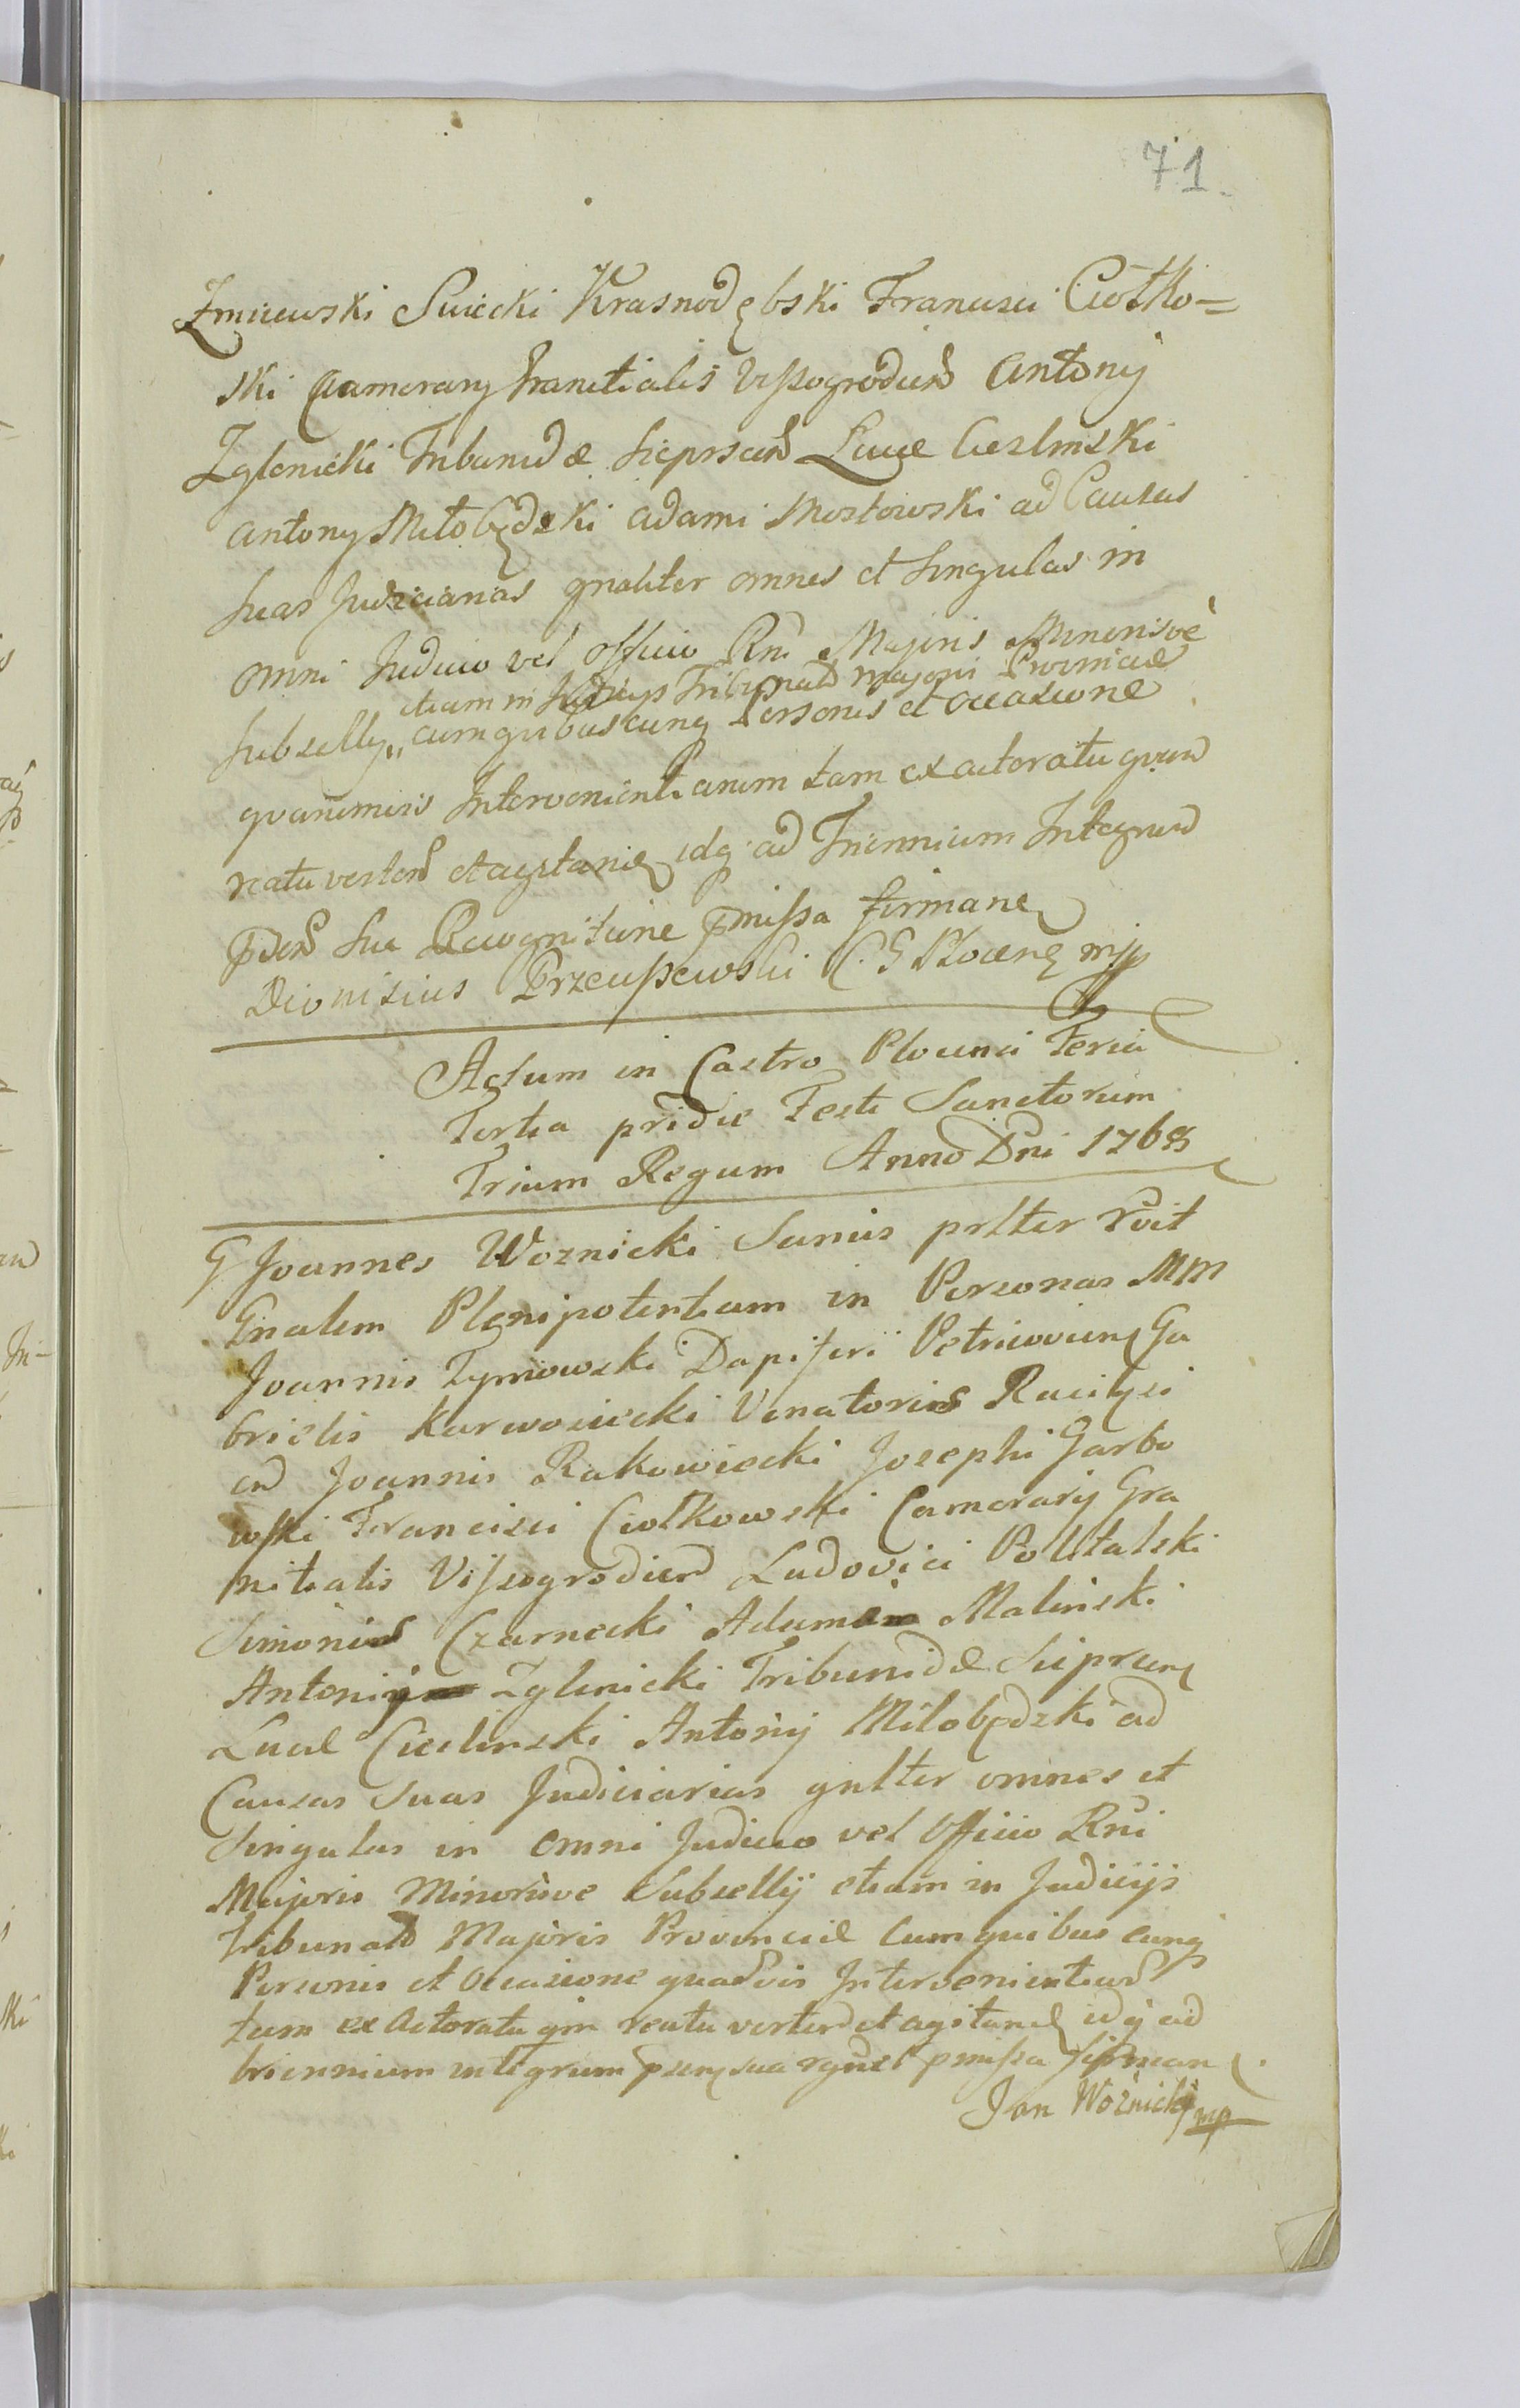 71
Zmiiewski Swiecki Krasnodębski Francisci Ciołko=
ski Camerarij Granitialis Vissogrodien Antonij
Zglenicki Tribunidæ Sieprscen Lucæ Cieslinski
Antonij Miłobędzki Adami Mostowski ad Causas
suas Judiciarias gnaliter omnes et singulas in
omni Judicio vel Officio Rni Majoris Minorisve
etiam in Judicijs Tribunal Majoris Provinciæ
Subsellij cum quibuscunq Personis et occasione
quavismis Intervenientiarum tam ex actoratu quam
reatu verten et agitan idq ad Triennium Integrum
pden sua Recognitione pmissa firmane
Dionisius Przeciszewski C. G. Plocen mp
Actum in Castro Plocensi Feria
Tertia pridie Festi Sanctorum
Trium Regum Anno Dni 1768
G Joannes Woznicki Sanus prlter rdit
Gnalem Plenipotentiam in Personas MM
Joannis Tymowski Dapiferi Petricovien Ga
brielis Karwosiecki Venatoris Raciązi
en Joannis Rakowiecki Josephi Garbo
wski Francisci Ciołkowski Camerarij Gra
nitialis Vissogrodien Ludovici Poltalski
Simonis Czarnecki Adam Malinski
Antonij Zglenicki Tribunidæ Sieprcen
Lucæ Cieslinski Antonij Miłobędzki ad
Causas suas Judiciarias gnlter omnes et
Singulas in omni Judicio vel Officio Rni
Majoris Minorisve Subsellij etiam in Judicijs
Tribunal Majoris Provinciæ cum quibus cunq
Personis et occasione quavis Intervenientiar
tam ex Actoratu qm reatu verten et agitan idq ad
triennium integrum psen sua rgne pmissa firman
Jan Woźnicki mp